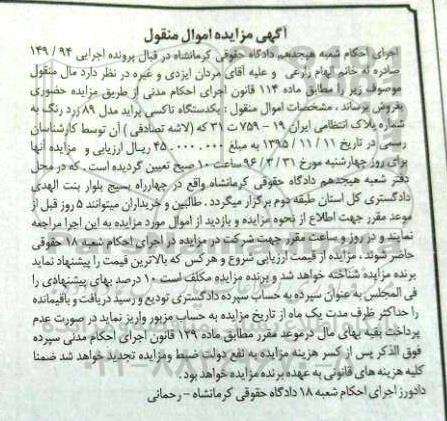 آگهی مزایده اموال منقول
اجرای احکام شعبه هیجدهم دادگاه حقوقی کرمانشاه در قبال پرونده اجرایی ۹۴ / ۱۴۹
صادره له خانم الهام زارعی و علیه آقای مردان ایزدی و غیره در نظر دارد مال منقول
موصوف زیر را مطابق ماده ۱۱۴ قانون اجرای احکام مدنی از طریق مزایده حضوری
بفروش برساند ، مشخصات اموال منقول : یکدستگاه تاکسی پراید مدل ۸۹ زرد رنگ به
شماره پلاک انتظامی ایران ۱۹ – ۷۵۹ ت ۳۱ که (لاشه تصادفی ) آن توسط کارشناسان
رسمی در تاریخ ۱۱ / ۱۱ / ۱۳۹۵ به مبلغ ۴۵.۰۰۰.۰۰۰ ریال ارزیابی و مزایده آنها
برای روز چهارشنبه مورخ ۳۱ / ۳ / ۹۶ ساعت ۱۰ صبح تعیین گردیده است . که در محل
دفتر شعبه هیجدهم دادگاه حقوقی کرمانشاه واقع در چهارراه بسیج بلوار بنت الهدی
دادگستری کل استان طبقه دوم برگزار میگردد . طالبین و خریداران میتوانند ۵ روز قبل از
موعد مقرر جهت اطلاع از نحوه مزایده و بازدید از اموال مورد مزایده به این اجرا مراجعه
نمایند و در روز و ساعت مقرر جهت شرکت در مزایده در اجرای احکام شعبه ۱۸ حقوقی
حاضر شوند . مزایده از قیمت ارزیابی شروع و هر کس که بالاترین قیمت را پیشنهاد نماید
برنده مزایده شناخته خواهد شد و برنده مزایده مکلف است ۱۰ درصد بهای پیشنهادی را
فی المجلس به عنوان سپرده به حساب سپرده دادگستری تودیع و رسید دریافت و باقیمانده
را حداکثر ظرف مدت یک ماه از تاریخ مزایده به حساب مزبور واریز نماید در صورت عدم
پرداخت بقیه بهای مال در موعد مقرر مطابق ماده ۱۲۹ قانون اجرای احکام مدنی سپرده
فوق الذکر پس از کسر هزینه مزایده به نفع دولت ضبط ومزایده تجدید خواهد شد ضمنا
کلیه هزینه های قانونی به عهده برنده مزایده خواهد بود .
دادورز اجرای احکام شعبه ۱۸ دادگاه حقوقی کرمانشاه – رحمانی